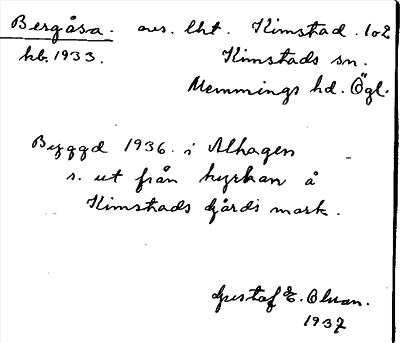 Bergåsa. avs. lht. Kimstad 1o2
hb. 1933. Kimstads sn.
Memmings hd. Ögl.
Byggd 1936 i Alhagen
s. ut från kyrkan å
Kimstads gårds mark.
Gustaf E. Olsson.
1937